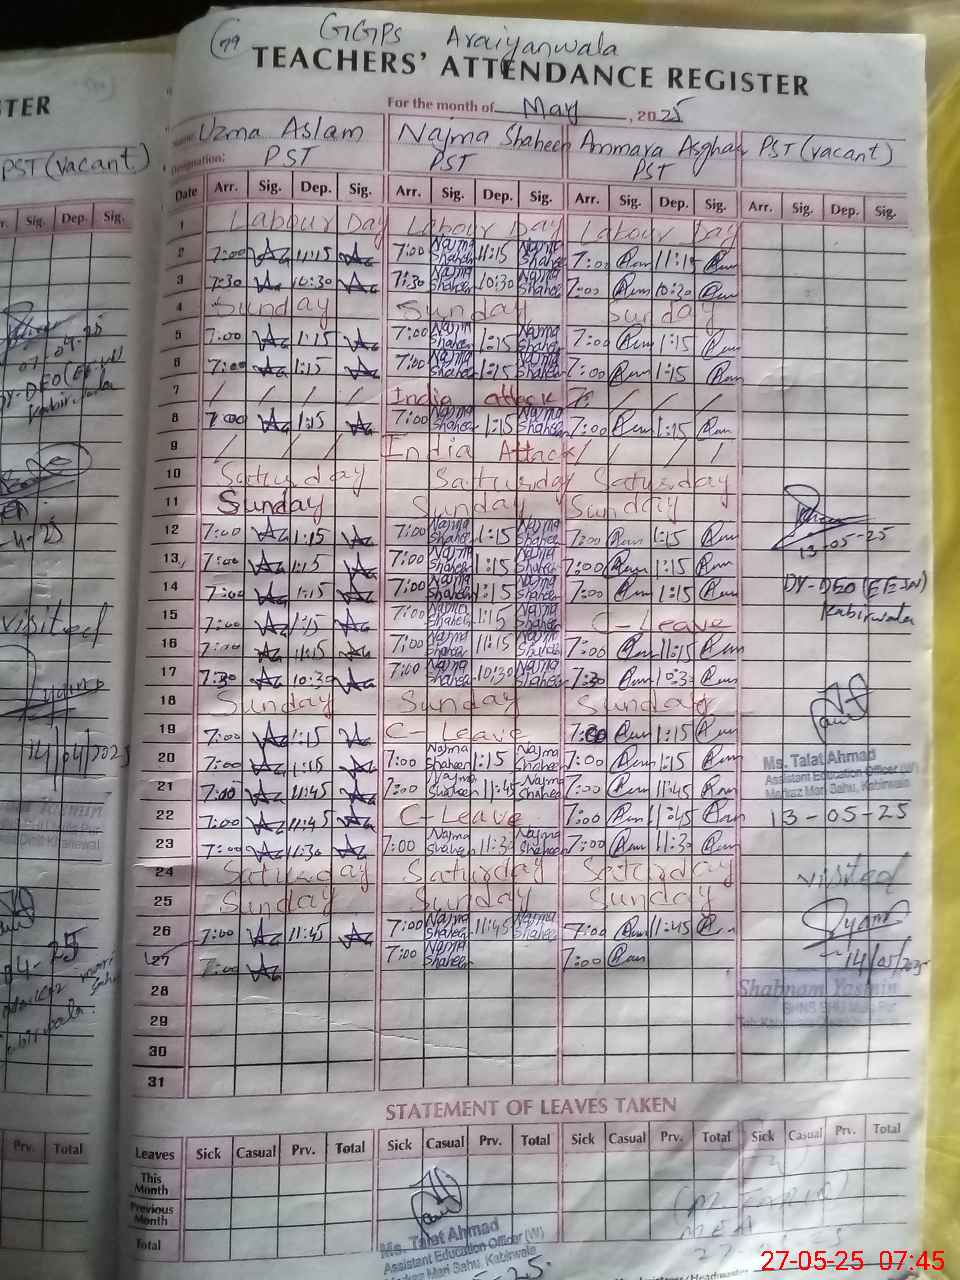 79
GGPS Araiyanwala
TEACHERS' ATTENDANCE REGISTER
For the month of May, 2025
Name: Uzma Aslam Najma Shaheen Ammara Asghar PST (vacant)
Designation: PST PST PST
Date Arr. Sig. Dep. Sig. Arr. Sig. Dep. Sig. Arr. Sig. Dep. Sig. Arr. Sig. Dep. Sig.
1 Labour Day Labour Day Labour Day
2 7:00 11:15 7:00 Najma Shaheen 11:15 Najma Shaheen 7:00 11:15
3 7:30 10:30 7:30 Najma Shaheen 10:30 Najma Shaheen 7:00 10:30
4 Sunday Sunday Sunday
5 7:00 1:15 7:00 Najma Shaheen 1:15 Najma Shaheen 7:00 1:15
6 7:00 1:15 7:00 Najma Shaheen 1:15 Najma Shaheen 7:00 1:15
7 / / / / India attack / / / /
8 7:00 1:15 7:00 Najma Shaheen 1:15 Najma Shaheen 7:00 1:15
9 / / / / India Attack / / / /
10 Saturday Saturday Saturday
11 Sunday Sunday Sunday
12 7:00 1:15 7:00 Najma Shaheen 1:15 Najma Shaheen 7:00 1:15
13 7:00 1:15 7:00 Najma Shaheen 1:15 Najma Shaheen 7:00 1:15
14 7:00 1:15 7:00 Najma Shaheen 1:15 Najma Shaheen 7:00 1:15
15 7:00 1:15 7:00 Najma Shaheen 1:15 Najma Shaheen C-Leave
16 7:00 11:15 7:00 Najma Shaheen 11:15 Najma Shaheen 7:00 11:15
17 7:30 10:30 7:00 Najma Shaheen 10:30 Najma Shaheen 7:30 10:30
18 Sunday Sunday Sunday
19 7:00 1:15 C-Leave 7:00 1:15
20 7:00 1:15 7:00 Najma Shaheen 1:15 Najma Shaheen 7:00 1:15
21 7:00 11:45 7:00 Najma Shaheen 11:45 Najma Shaheen 7:00 11:45
22 7:00 11:45 C-Leave 7:00 11:45
23 7:00 11:30 7:00 Najma Shaheen 11:30 Najma Shaheen 7:00 11:30
24 Saturday Saturday Saturday
25 Sunday Sunday Sunday
26 7:00 11:45 7:00 Najma Shaheen 11:45 Najma Shaheen 7:00 11:45
27 7:00 7:00 Najma Shaheen 7:00
28
29
30
31
13-05-25
DY-DEO (EE-W)
Kabirwala
Ms. Talat Ahmad
Assistant Education Officer (W)
Markaz Mari Sahu, Kabirwala
13-05-25
visited
14/05/2025
Shabnam Yasmin
STATEMENT OF LEAVES TAKEN
Leaves Sick Casual Prv. Total Sick Casual Prv. Total Sick Casual Prv. Total Sick Casual Prv. Total
This Month
Previous Month
Total
Ms. Talat Ahmad
Assistant Education Officer (W)
Markaz Mari Sahu, Kabirwala
MEA
STER
PST (vacant)
Sig. Dep. Sig.
07-04-25
DY-DEO (EE-W)
Kabirwala
visited
14/04/2025
Prv. Total
27-05-25 07:45